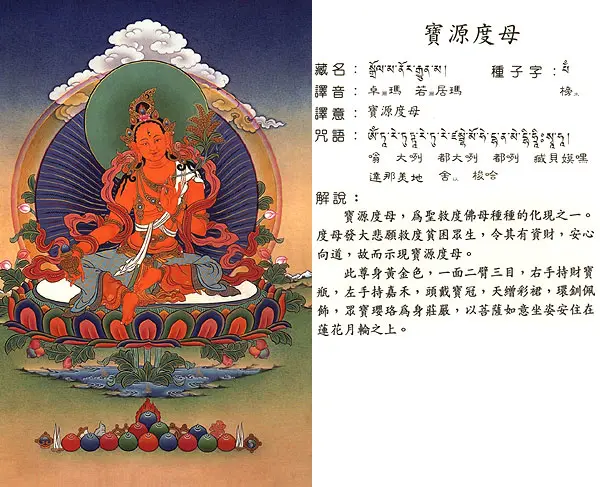 寶源度母
藏名：སྒྲོལ་མ་ནོར་རྒྱུན་མ། 種子字：
譯音：卓瑪 若居瑪 榜
譯意：寶源度母
咒語：
嗡 大咧 都大咧 都咧 臧貝嫫嘿
達那美地 舍 梭哈
解說：
寶源度母，爲聖救度佛母種種的化現之一。
度母發大悲願救度貧困眾生，令其有資財，安心
向道，故而示現寶源度母。
此尊身黃金色，一面二臂三目，右手持財寶
瓶，左手持嘉禾，頭戴寶冠，天繒彩裙，環釧佩
飾，眾寶瓔珞爲身莊嚴，以菩薩如意坐姿安住在
蓮花月輪之上。